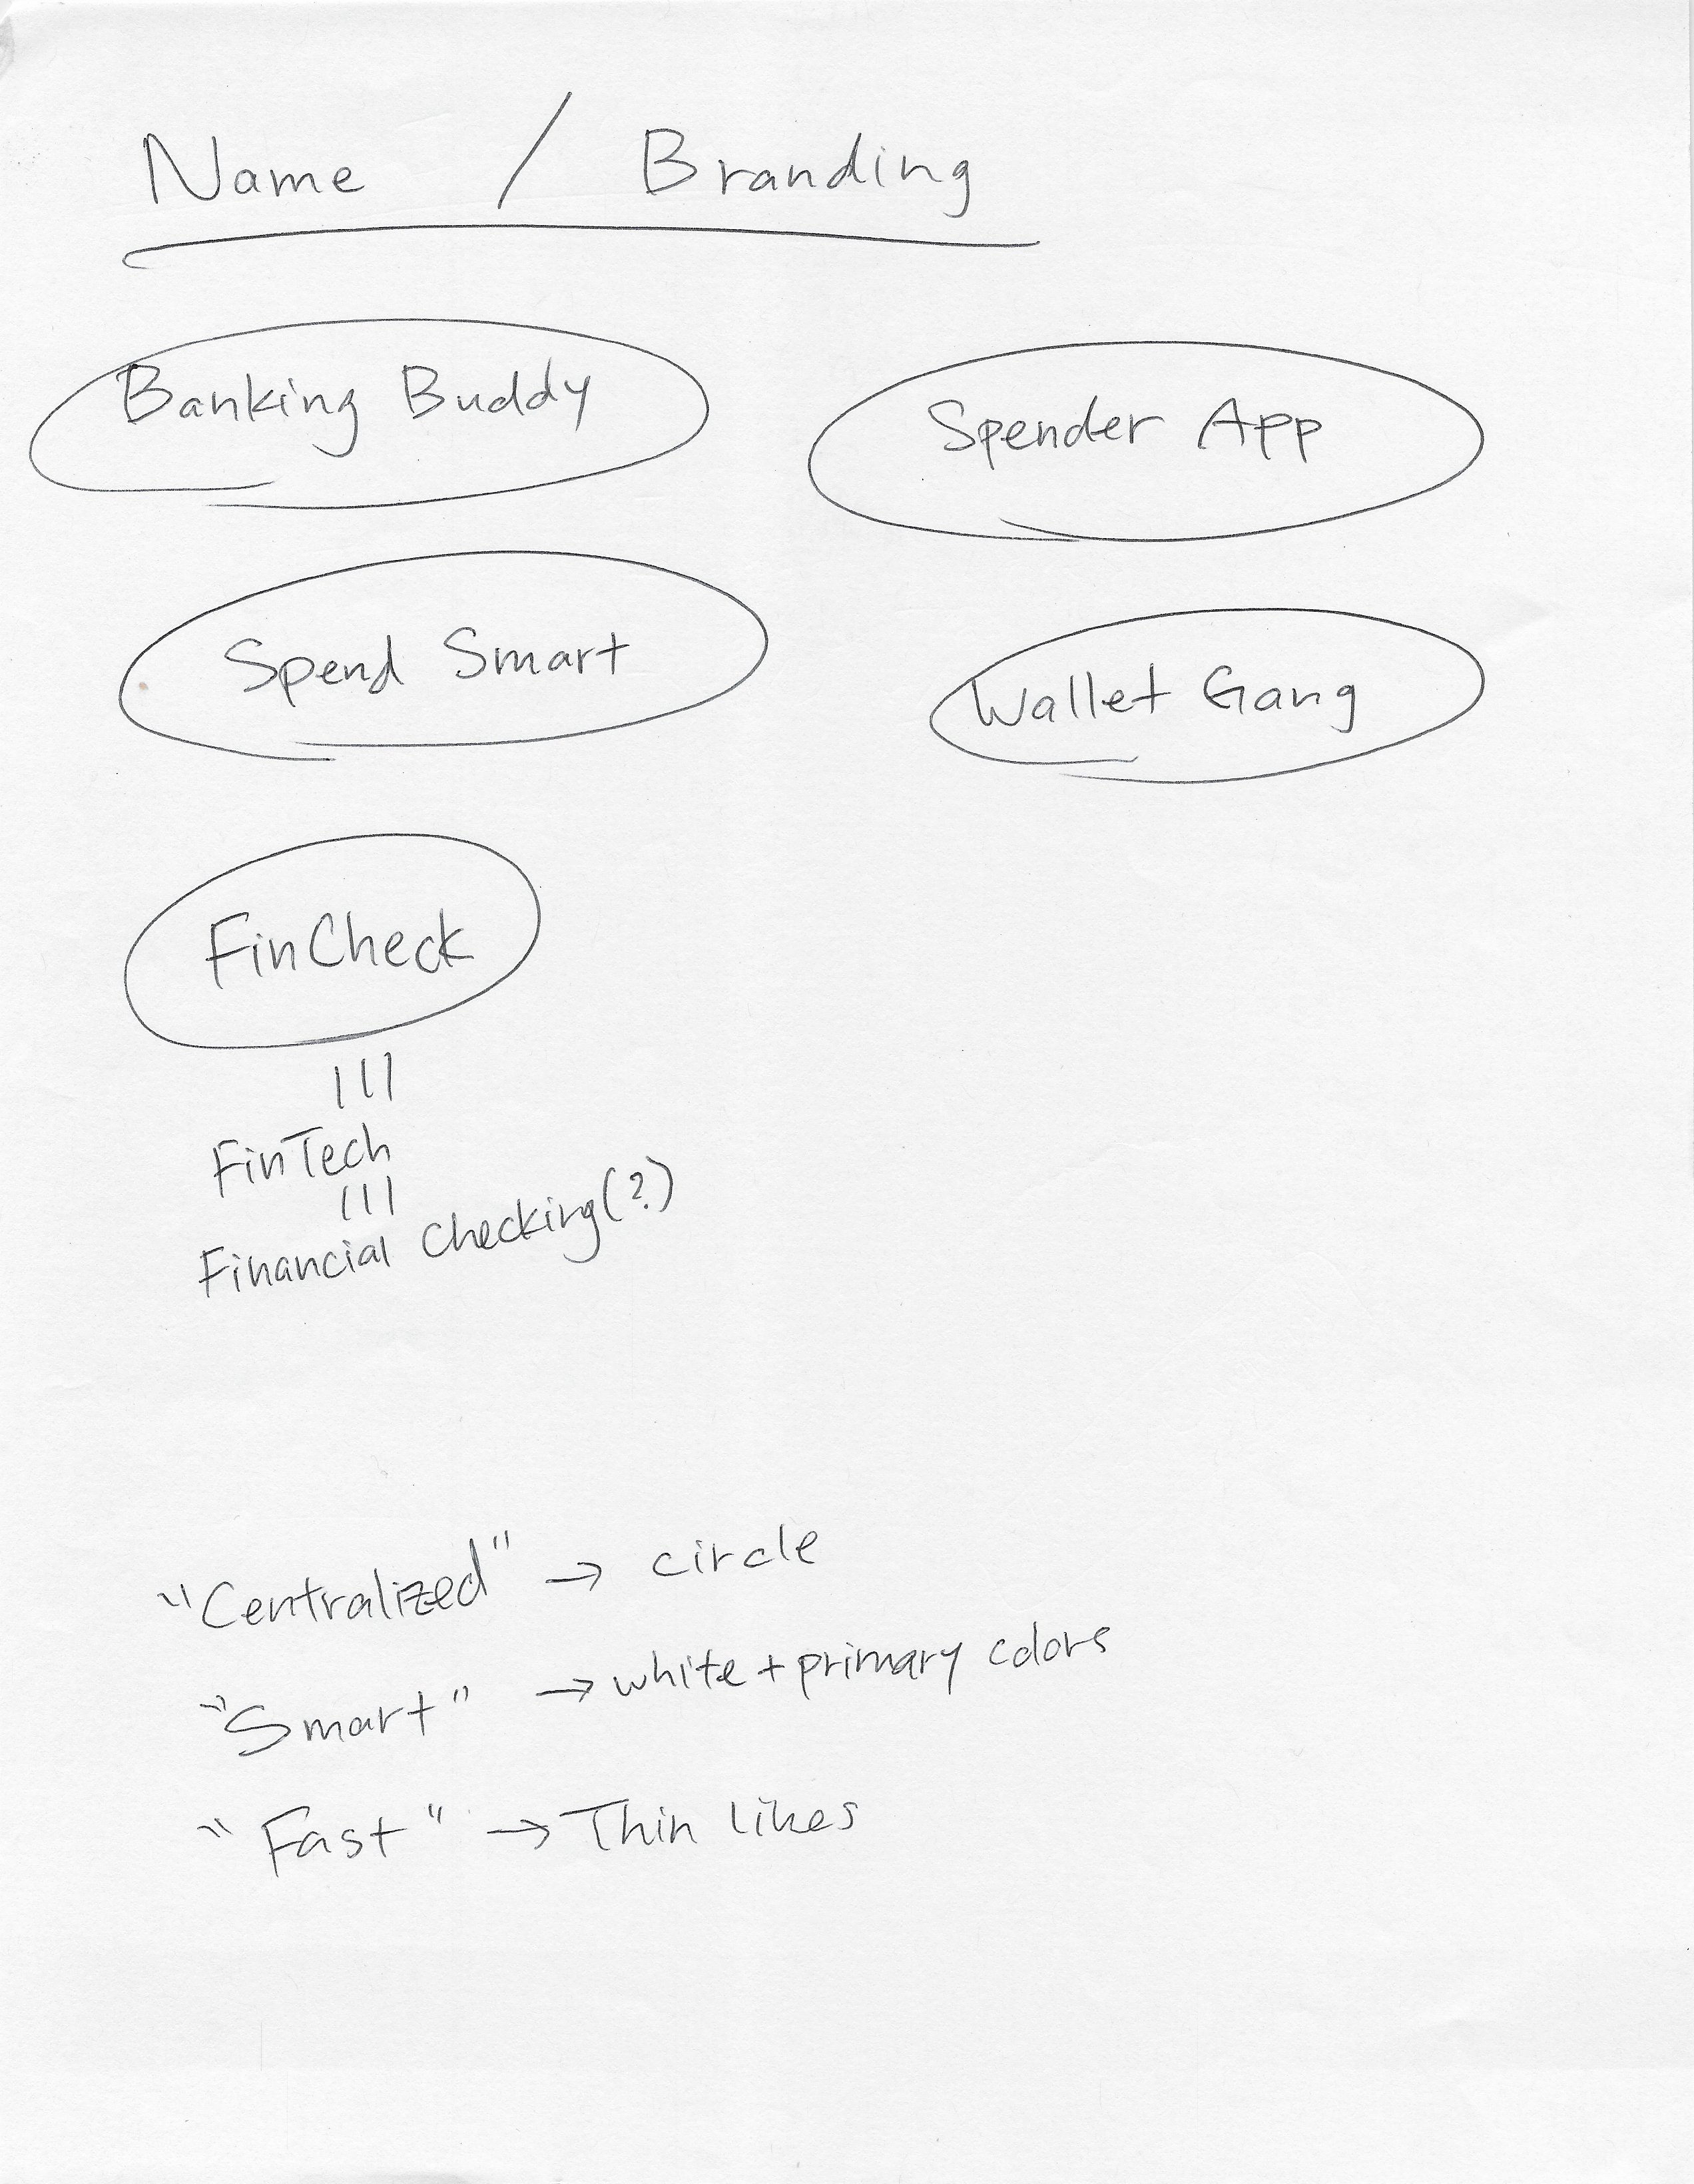 Name / Branding
Banking Buddy
Spender App
Spend Smart
Wallet Gang
FinCheck
FinTech
Financial Checking(?)
"Centralized" → circle
"Smart" → white + primary colors
"Fast" → Thin lines